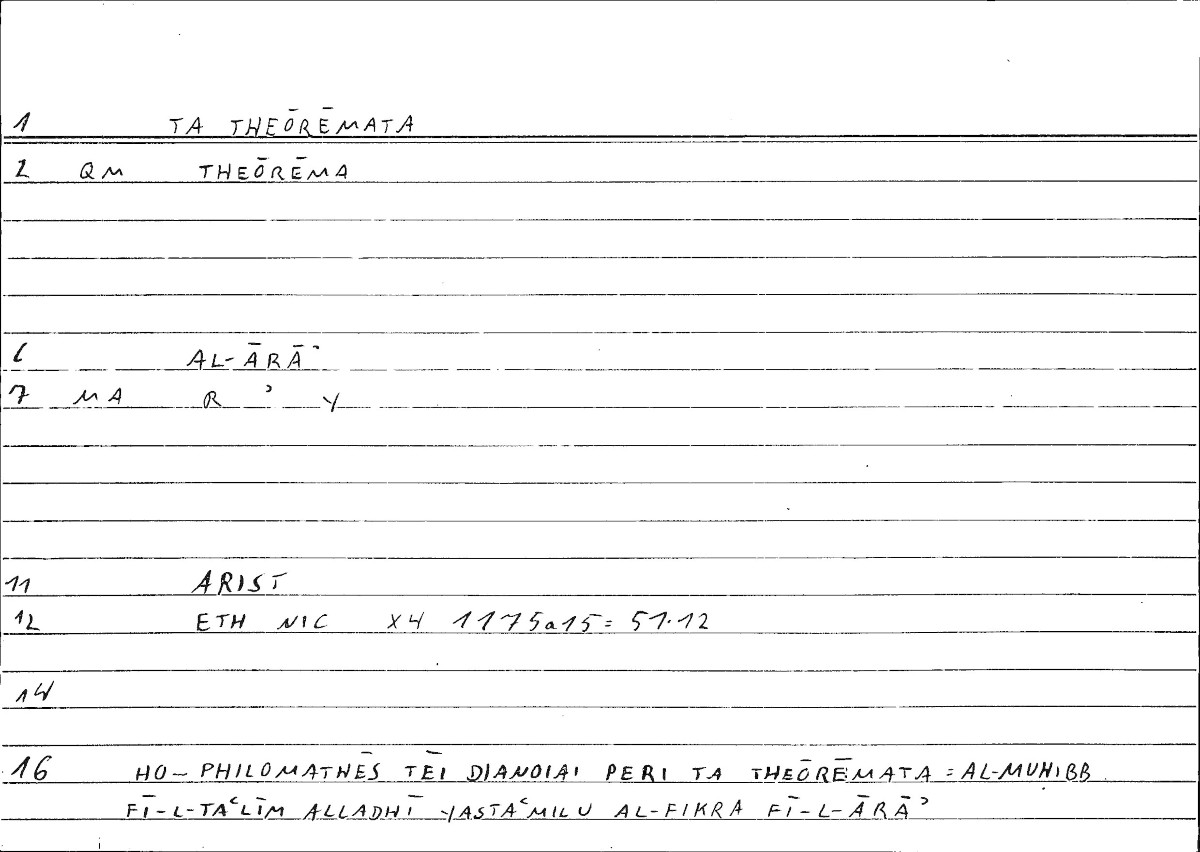 1 TA THEŌRĒMATA
2 QM THEŌRĒMA
6 AL-ĀRĀʾ
7 MA R ʾ Y
11 ARIST
12 ETH NIC X4 1175a15= 51.12
14
16 HO-PHILOMATHĒS TĒI DIANOIAI PERI TA THEŌRĒMATA = AL-MUHIBB
FĪ-L-TAʿLĪM ALLADHĪ YASTAʿMILU AL-FIKRA FĪ-L-ĀRĀʾ